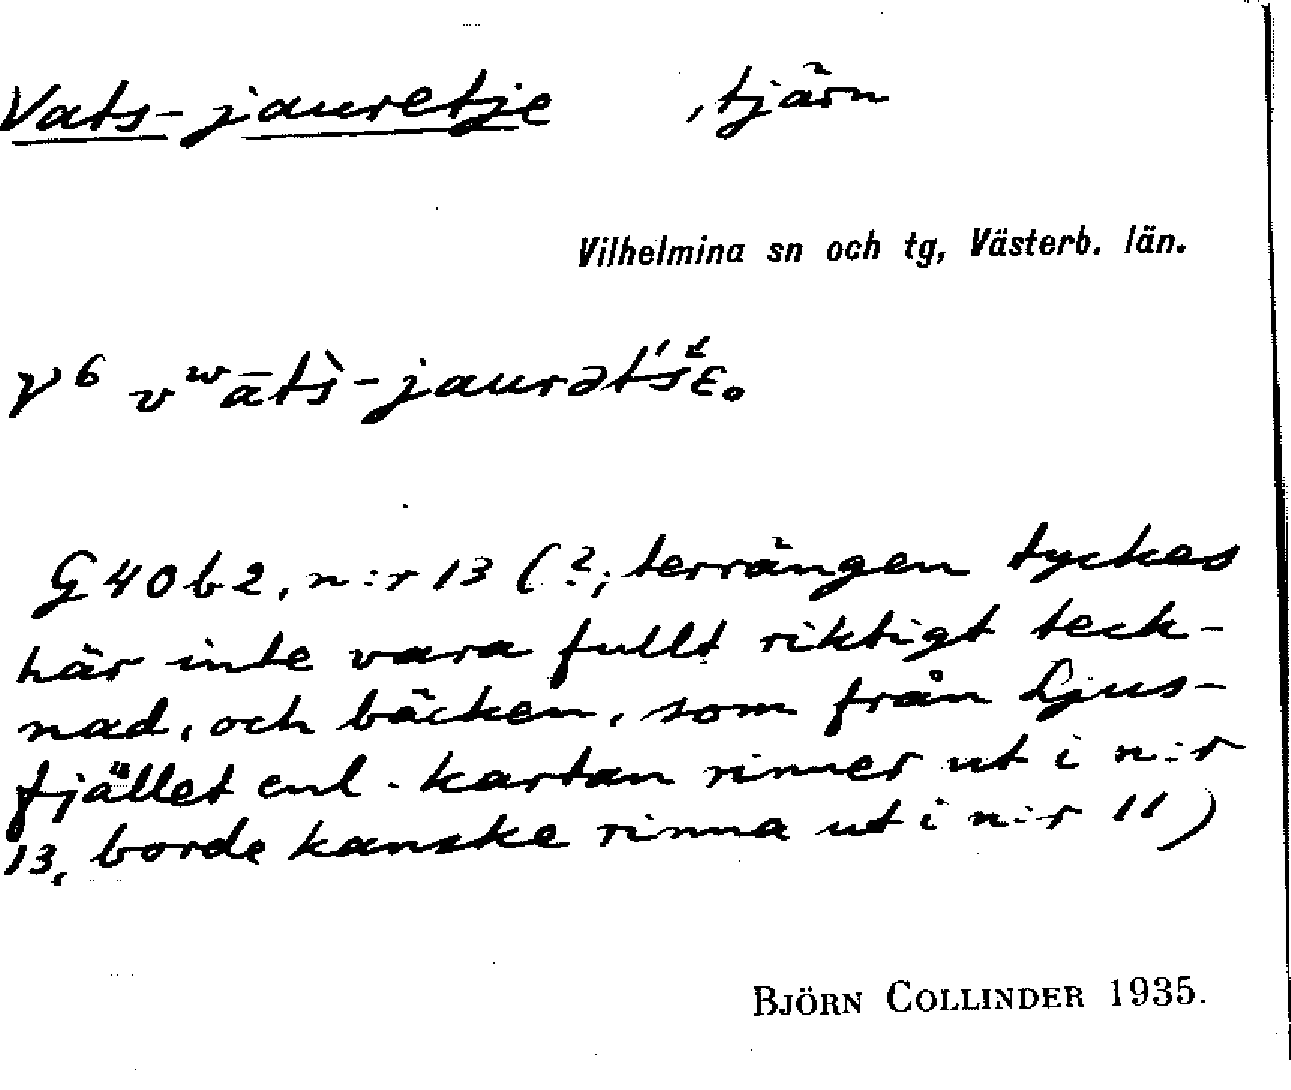 Vats-jauretje , tjärn
Vilhelmina sn och tg, Västerb. län.
V⁶ vʷāts̀-jaurət́šɛ̭ₒ
G 40 b 2, n:r 13 (?; terrängen tyckes
här inte vara fullt riktigt teck-
nad, och bäcken, som från Ljus-
fjället enl. kartan rinner ut i n:r
13, borde kanske rinna ut i n:r 11)
BJÖRN COLLINDER 1935.